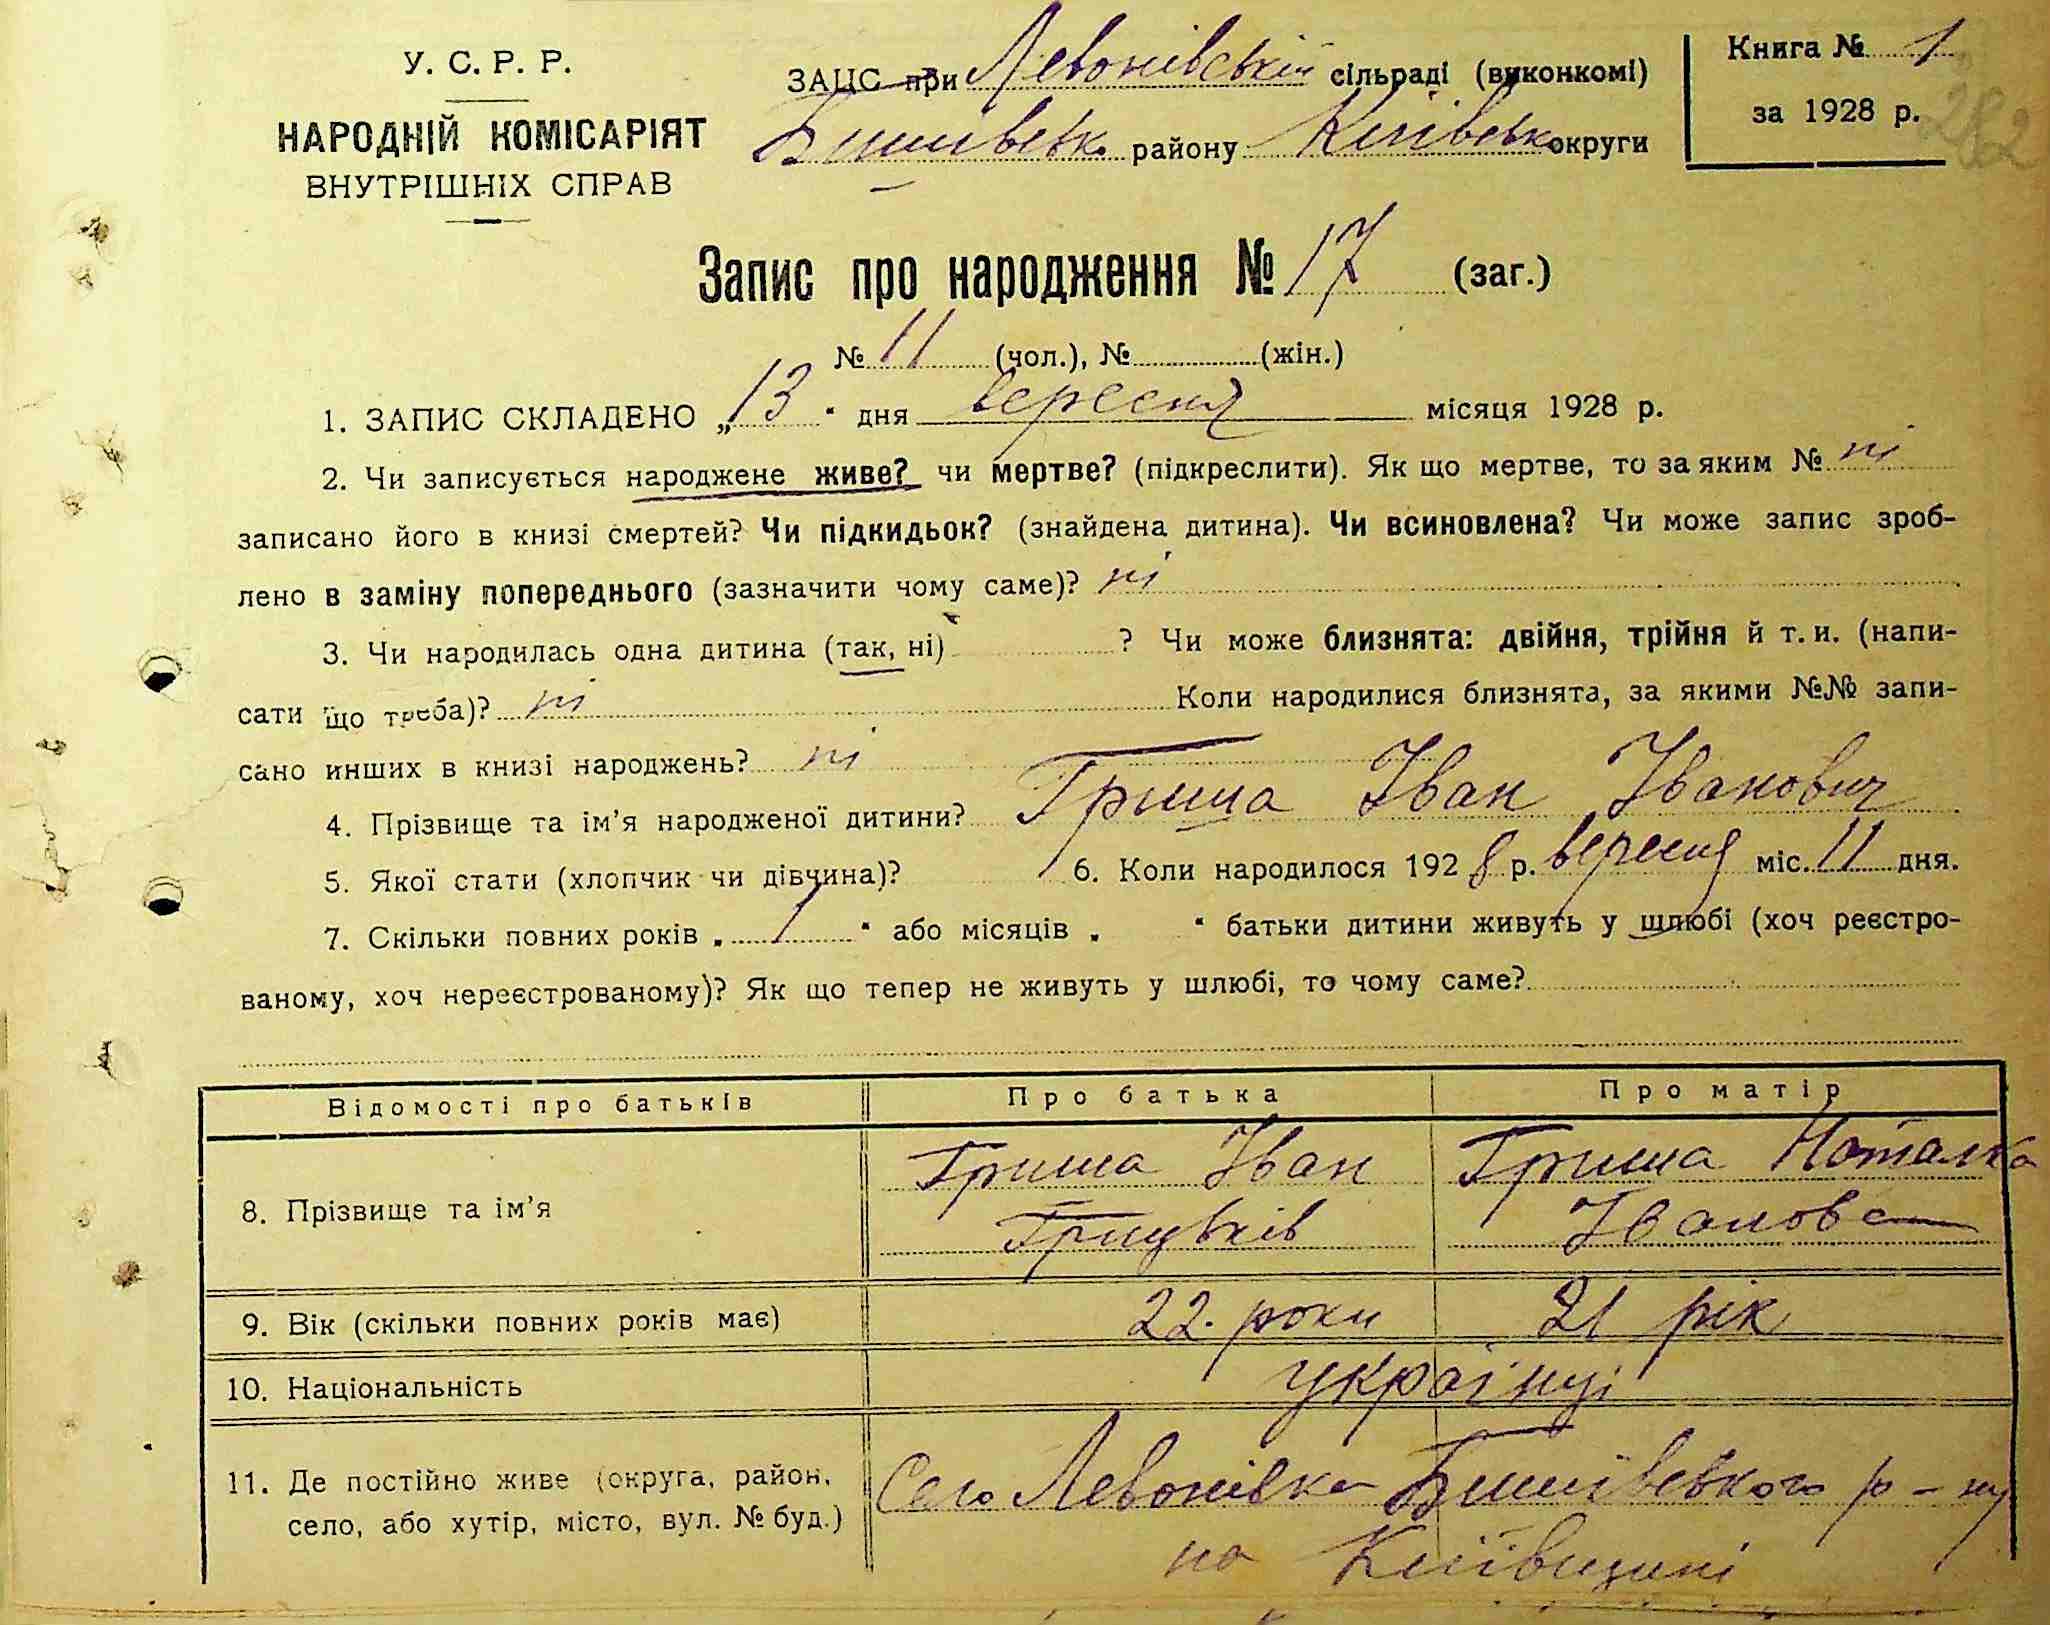 У. С. Р. Р.
НАРОДНІЙ КОМІСАРІЯТ
ВНУТРІШНІХ СПРАВ
ЗАЦС при Левонівській сільраді (виконкомі)
Бишівськ. району Київськ округи
Книга № 1
за 1928 р.
282
Запис про народження № 17 (заг.)
№ 11 (чол.), № (жін.)
1. ЗАПИС СКЛАДЕНО „13“ дня вересня місяця 1928 р.
2. Чи записується народжене живе? чи мертве? (підкреслити). Як що мертве, то за яким № ні
записано його в книзі смертей? Чи підкидьок? (знайдена дитина). Чи всиновлена? Чи може запис зроб-
лено в заміну попереднього (зазначити чому саме)? ні
3. Чи народилась одна дитина (так, ні) ? Чи може близнята: двійня, трійня й т. и. (напи-
сати що треба)? ні Коли народилися близнята, за якими №№ запи-
сано инших в книзі народжень? ні
4. Прізвище та ім’я народженої дитини? Гриша Іван Іванович
5. Якої стати (хлопчик чи дівчина)? 6. Коли народилося 1928 р. вересня міс. 11 дня.
7. Скільки повних років „ 1 “ або місяців „ “ батьки дитини живуть у шлюбі (хоч реєстро-
ваному, хоч нереєстрованому)? Як що тепер не живуть у шлюбі, то чому саме?
Відомості про батьків Про батька Про матір
8. Прізвище та ім’я Гриша Іван Грицьків Гриша Наталка Іванова
9. Вік (скільки повних років має) 22. роки 21 рік
10. Національність українці
11. Де постійно живе (округа, район, село, або хутір, місто, вул. № буд.) Село Левонівка Бишівського р-ну
на Київщині